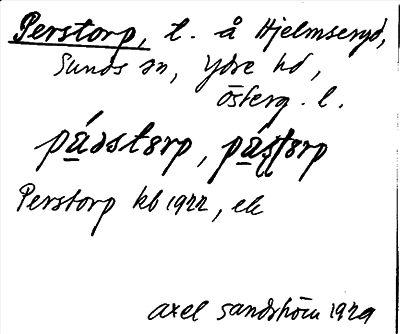 Perstorp, t. å Hjelmseryd,
Sunds sn, Ydre hd,
Österg. l.
páɔstɵrp, páʂʈɵrp
Perstorp kb 1922, ek
Axel Sandström 1929